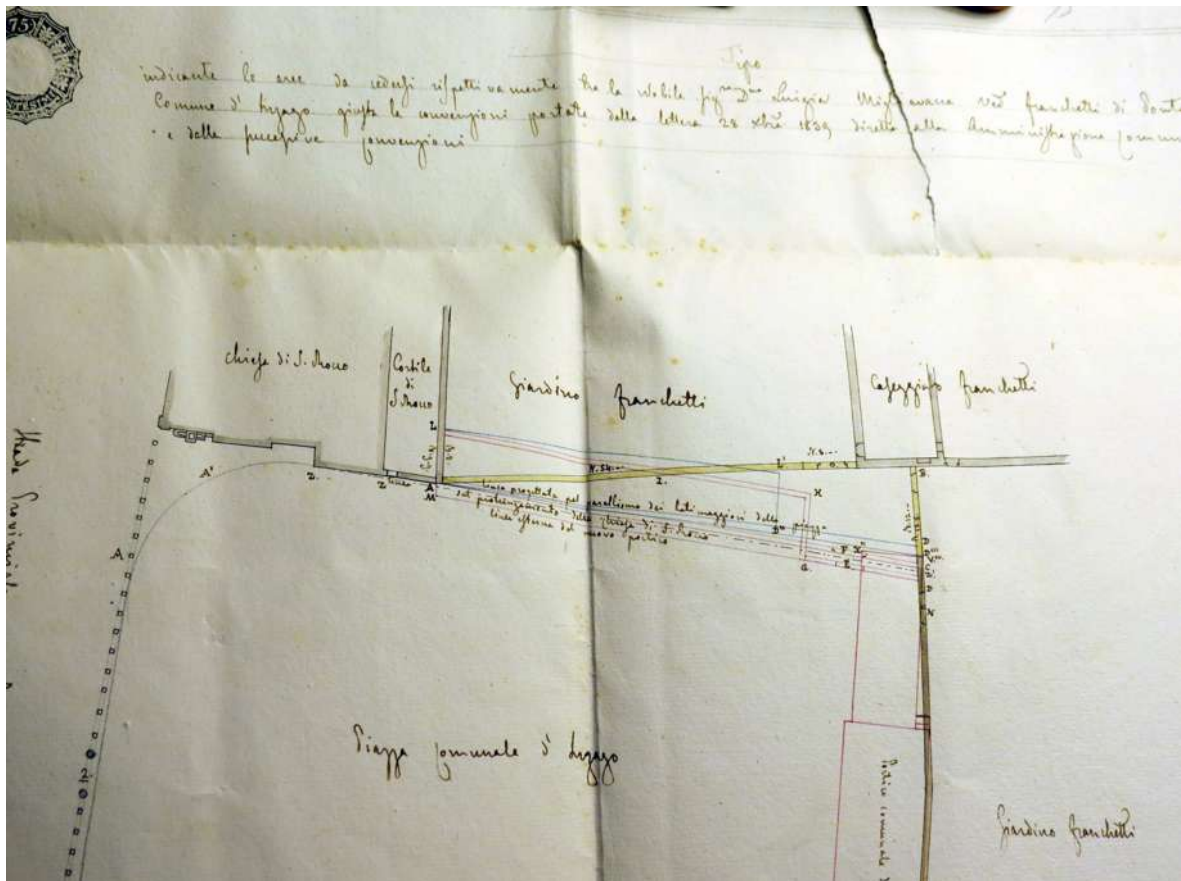 75
Tipo
indicante le aree da cedersi rispettivamente tra la Nobile Sig.ra D.a Luigia ved.a Franchetti di Ponte
Comune d' Inzago giusta le convenzioni portate dalla lettera 28 Xbre 1839 diretta alla Amministrazione Comun
e dalle successive convenzioni
Chiesa di S. Rocco
Cortile
di
S. Rocco
Giardino Franchetti
Caseggiato Franchetti
L
N. 54
L'
A'
A
Z
Z'
M
B
H
D
G
F
E
X
N
Linea progettata pel parallelismo dei lati maggiori della piazza
sul prolungamento della chiesa di S. Rocco
linea esterna del nuovo portico
Strada Provinciale
Piazza Comunale d' Inzago
Portico comunale
Giardino Franchetti